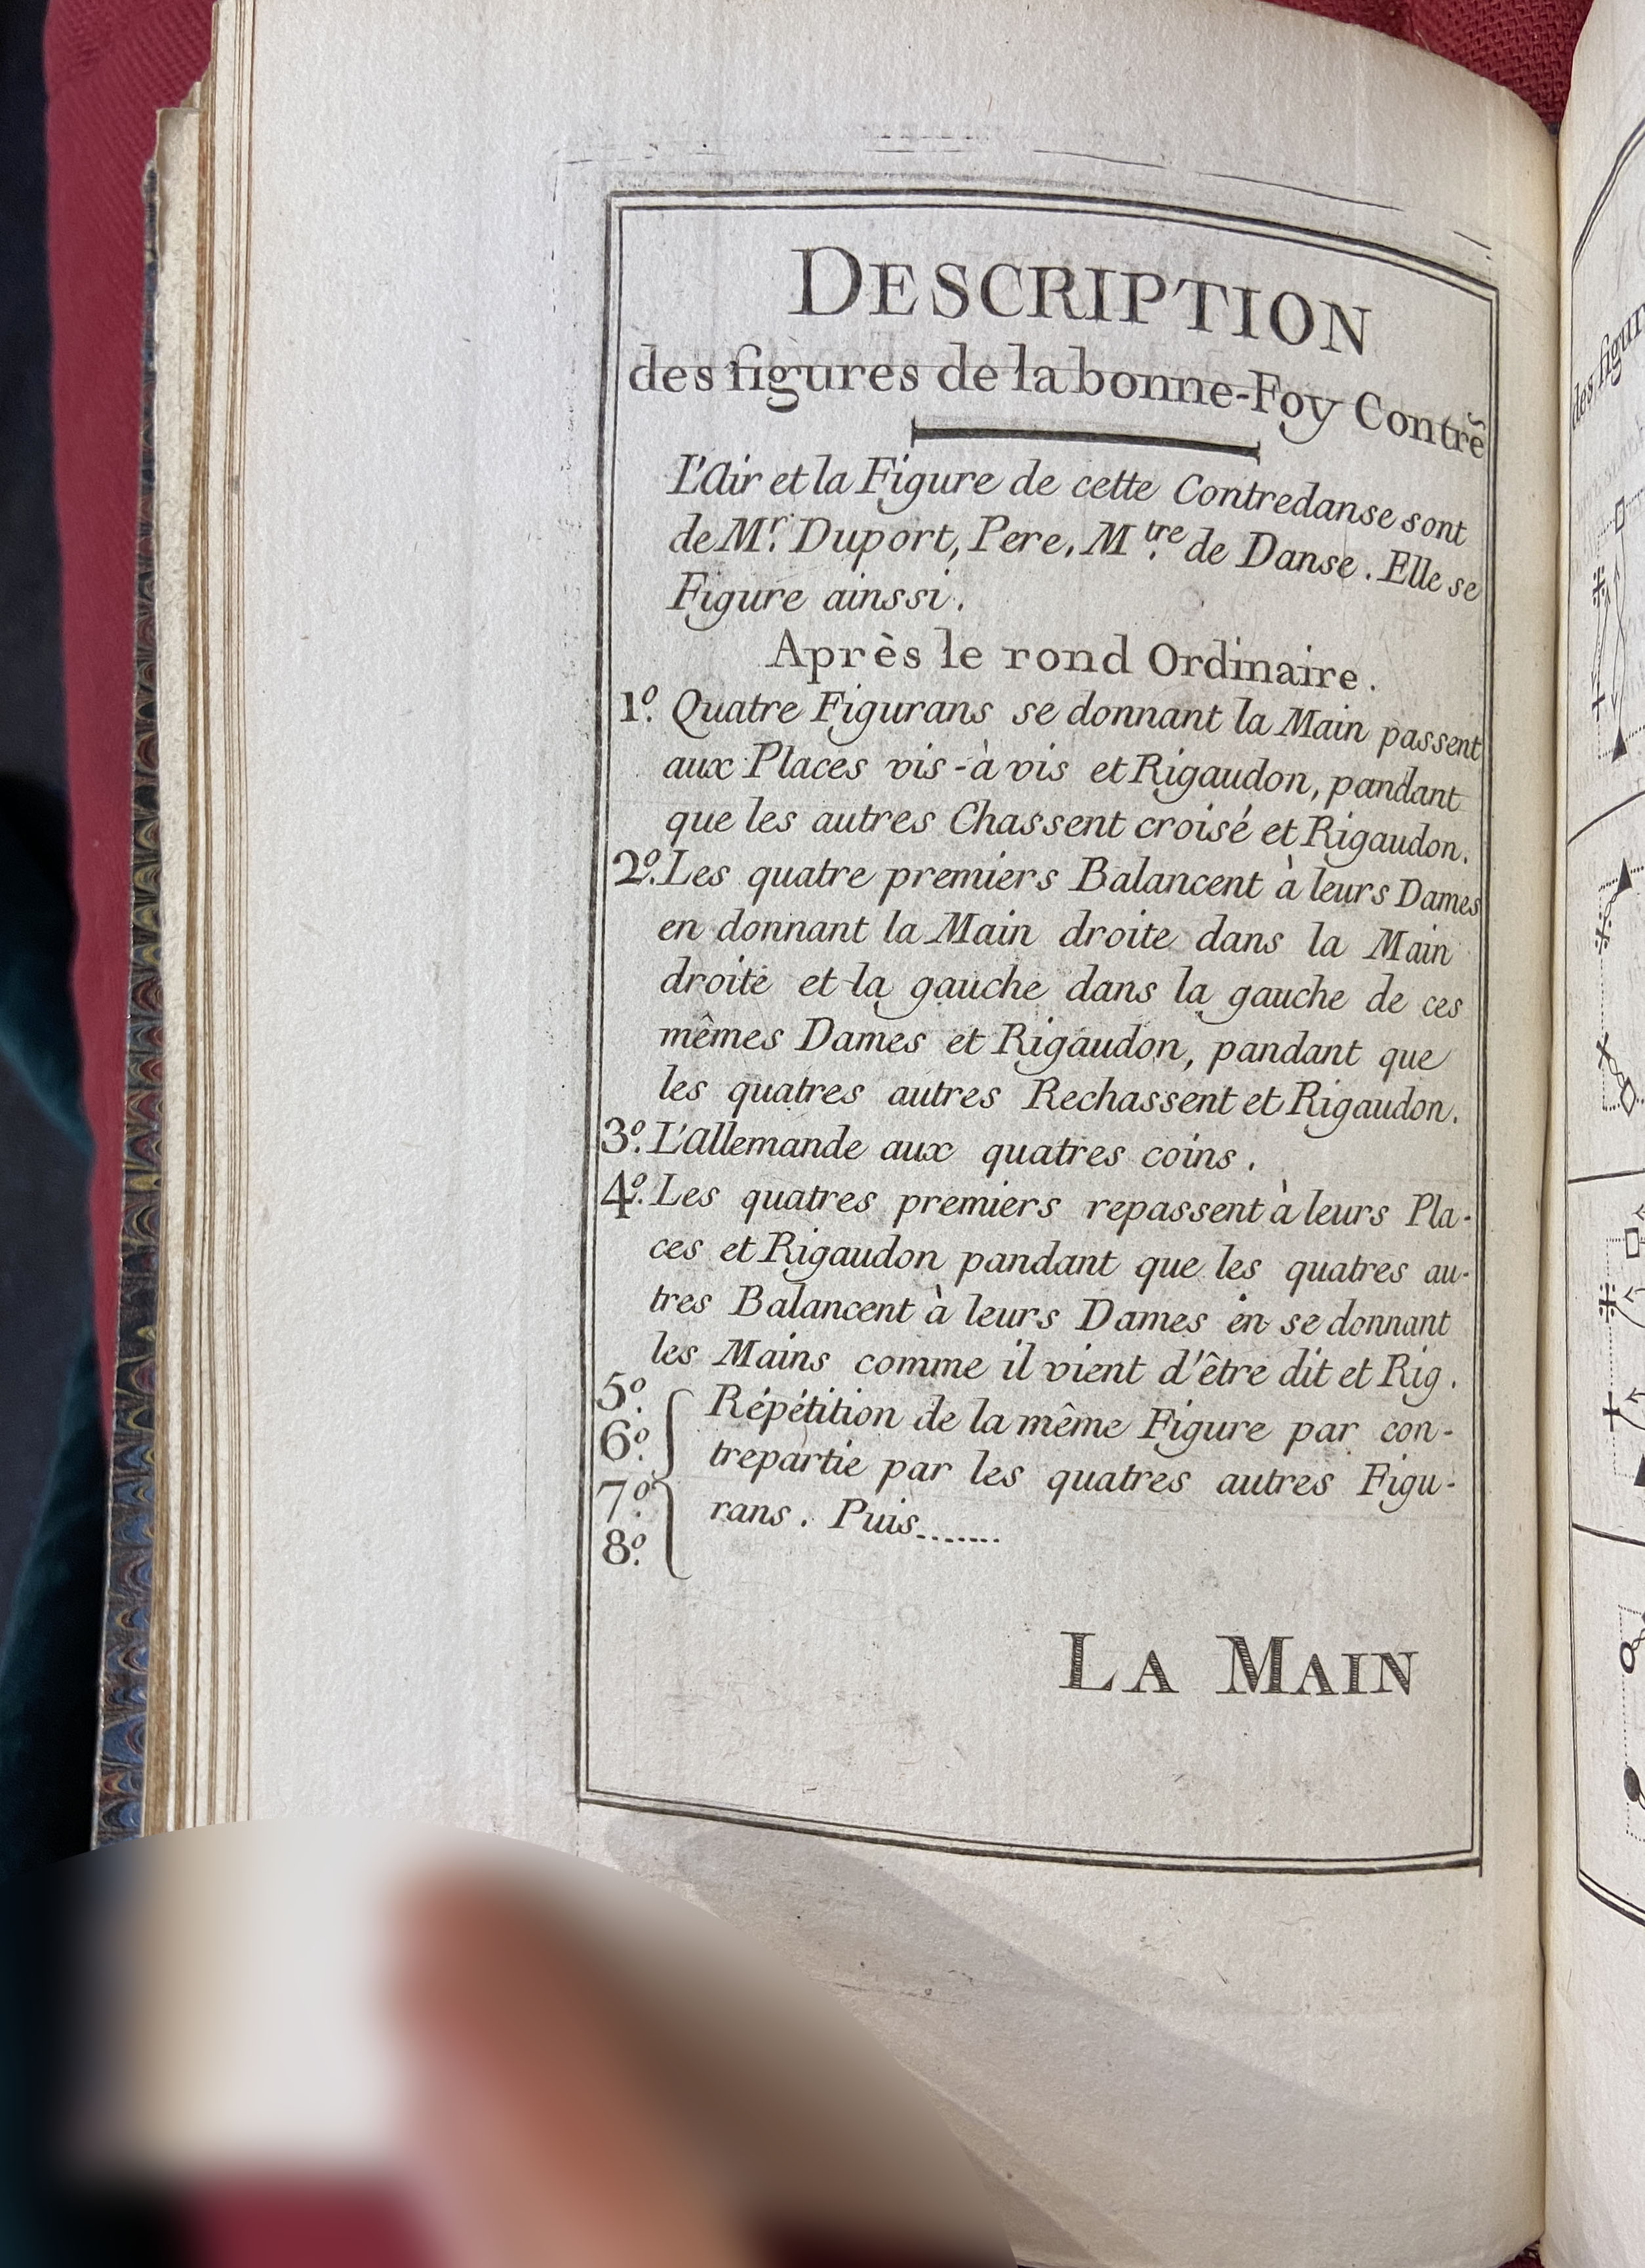 DESCRIPTION
des figures de la bonne-Foy Contrẽ
L'Air et la Figure de cette Contredanse sont
de Mr. Duport, Pere, Mtre. de Danse. Elle se
Figure ainssi.
Après le rond Ordinaire.
1º. Quatre Figurans se donnant la Main passent
aux Places vis-à vis et Rigaudon, pandant
que les autres Chassent croisé et Rigaudon.
2º. Les quatre premiers Balancent à leurs Dames
en donnant la Main droite dans la Main
droite et la gauche dans la gauche de ces
mêmes Dames et Rigaudon, pandant que
les quatres autres Rechassent et Rigaudon.
3º. L'allemande aux quatres coins.
4º. Les quatres premiers repassent à leurs Pla-
ces et Rigaudon pandant que les quatres au-
tres Balancent à leurs Dames en se donnant
les Mains comme il vient d'être dit et Rig.
5º. Répétition de la même Figure par con-
6º. trepartie par les quatres autres Figu-
7º. rans. Puis.......
8º.
LA MAIN
des figur